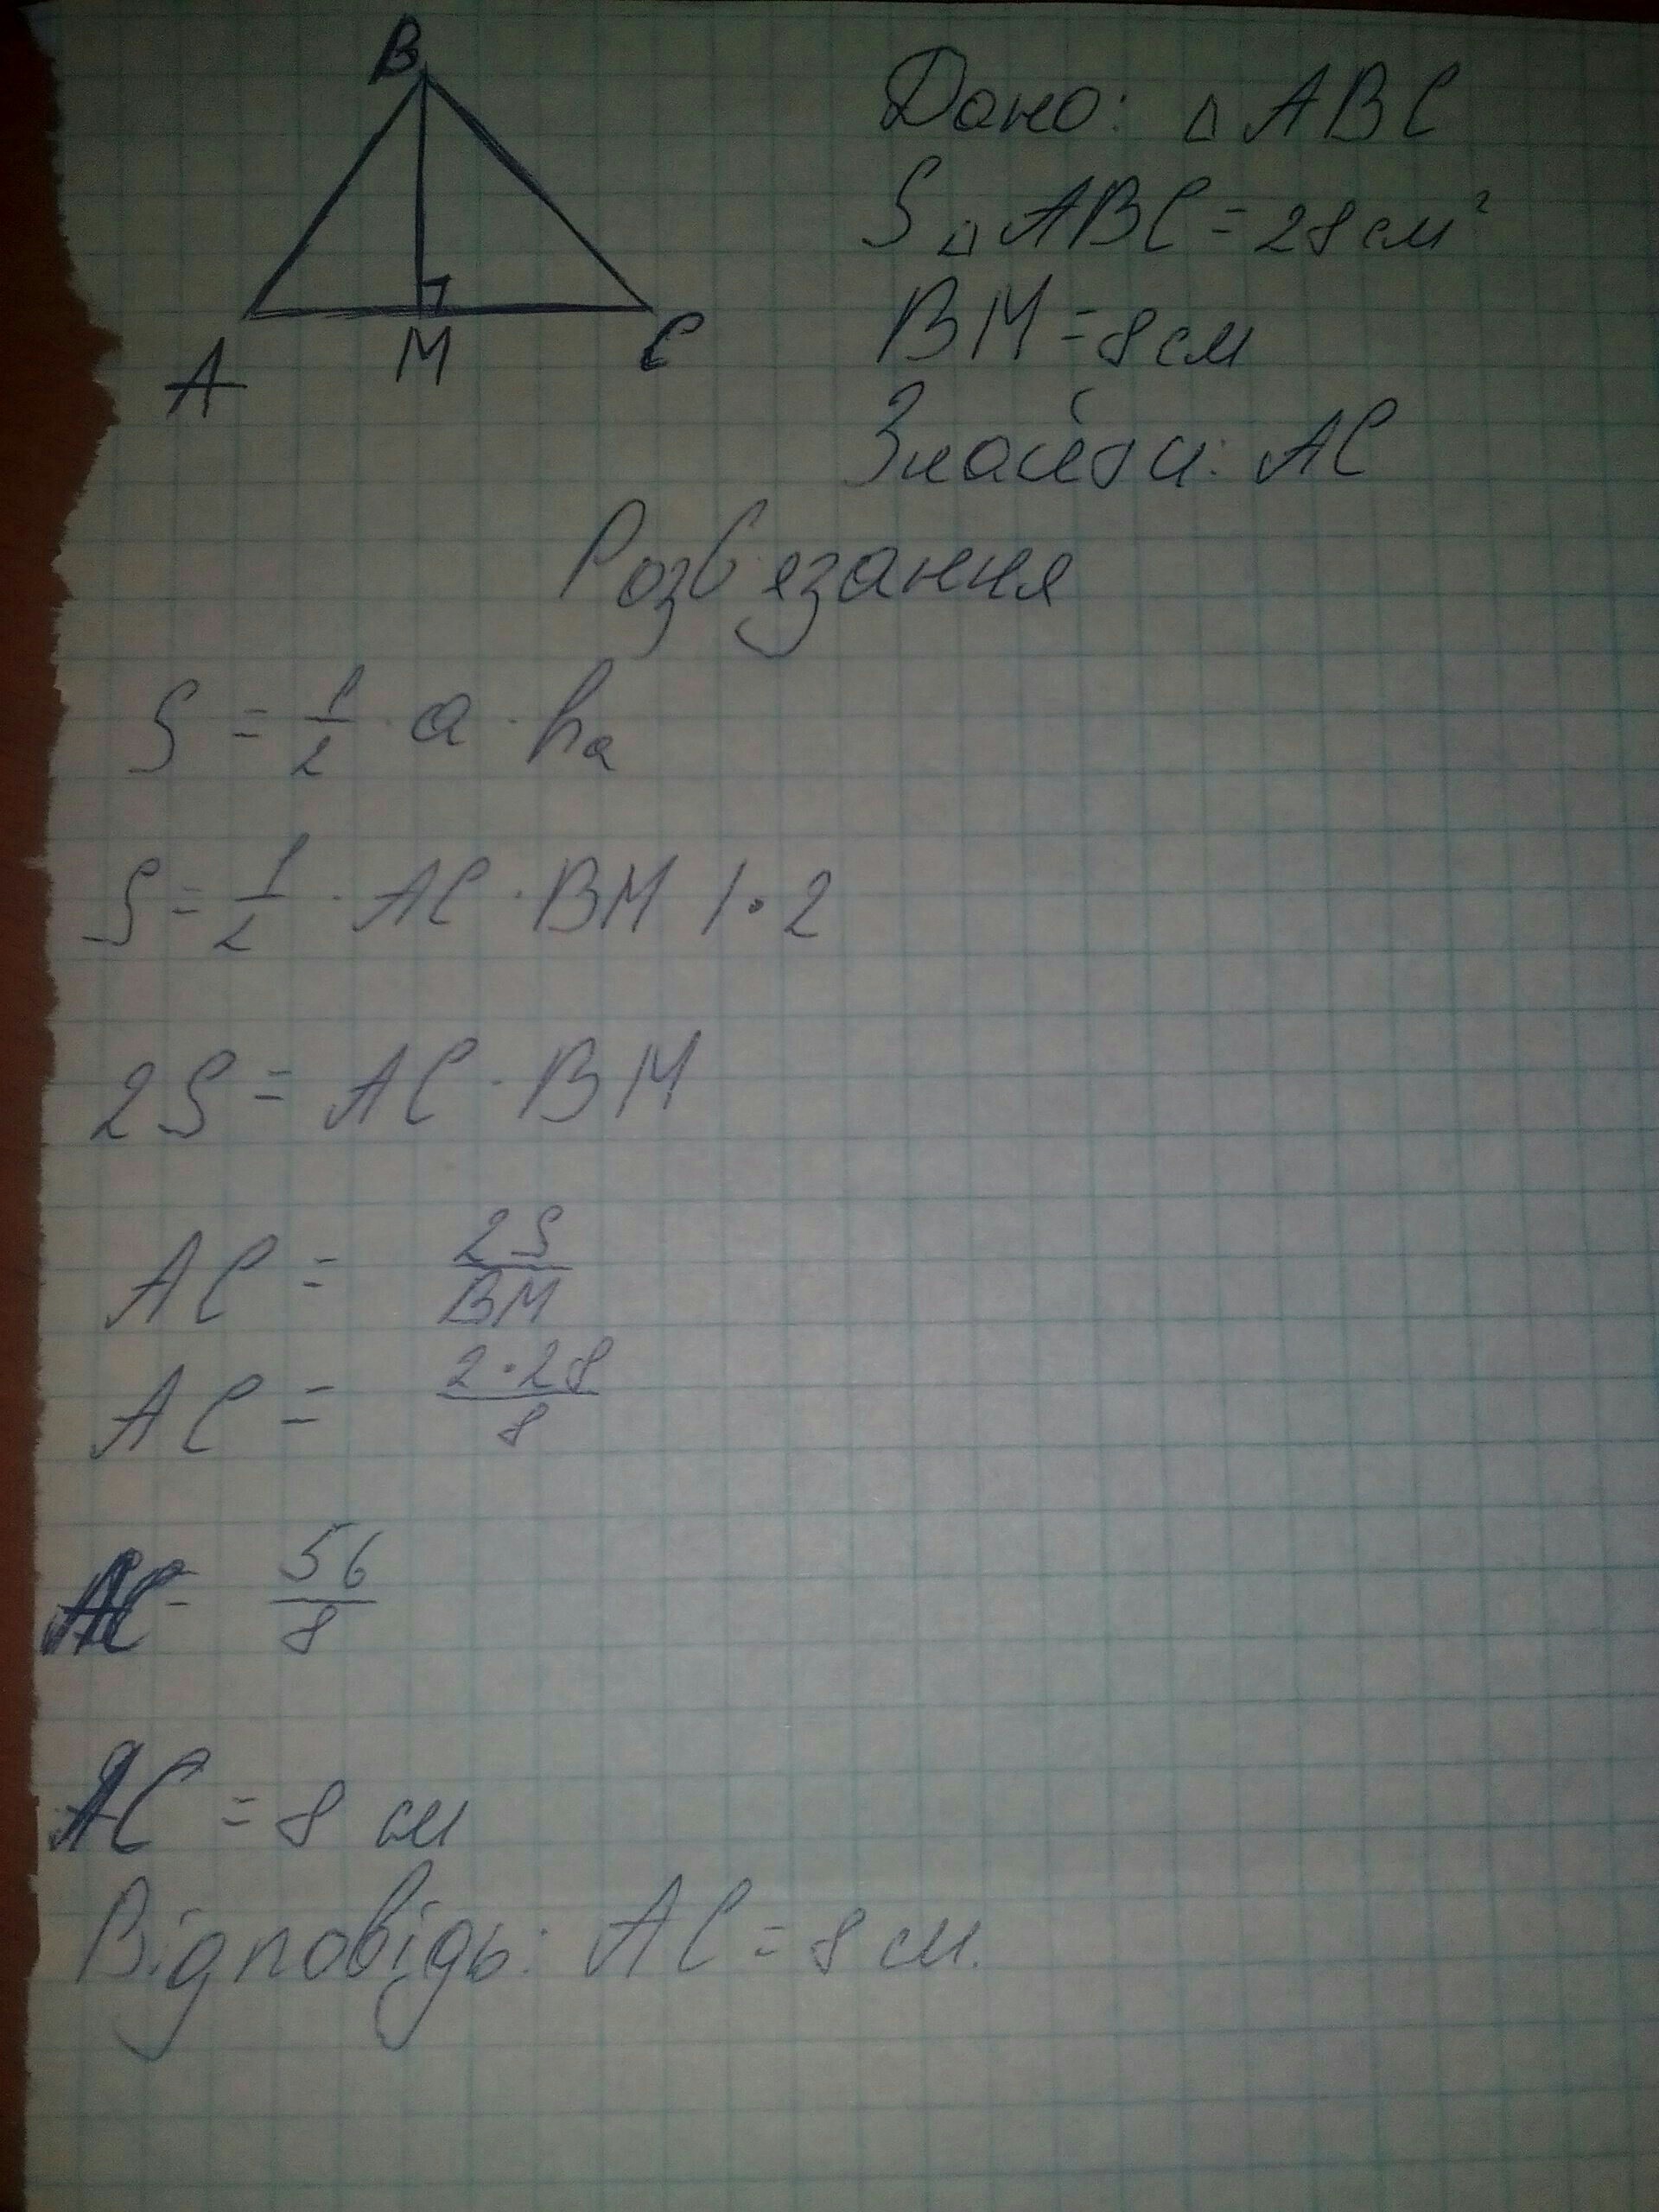 B
A M C
Дано: △ABC
S△ABC = 28 см²
BM = 8 см
Знайти: AC
Розвязання
S = 1/2 · a · hₐ
S = 1/2 · AC · BM | · 2
2S = AC · BM
AC = 2S/BM
AC = 2·28/8
AC = 56/8
AC = 8 см
Відповідь: AC = 8 см.